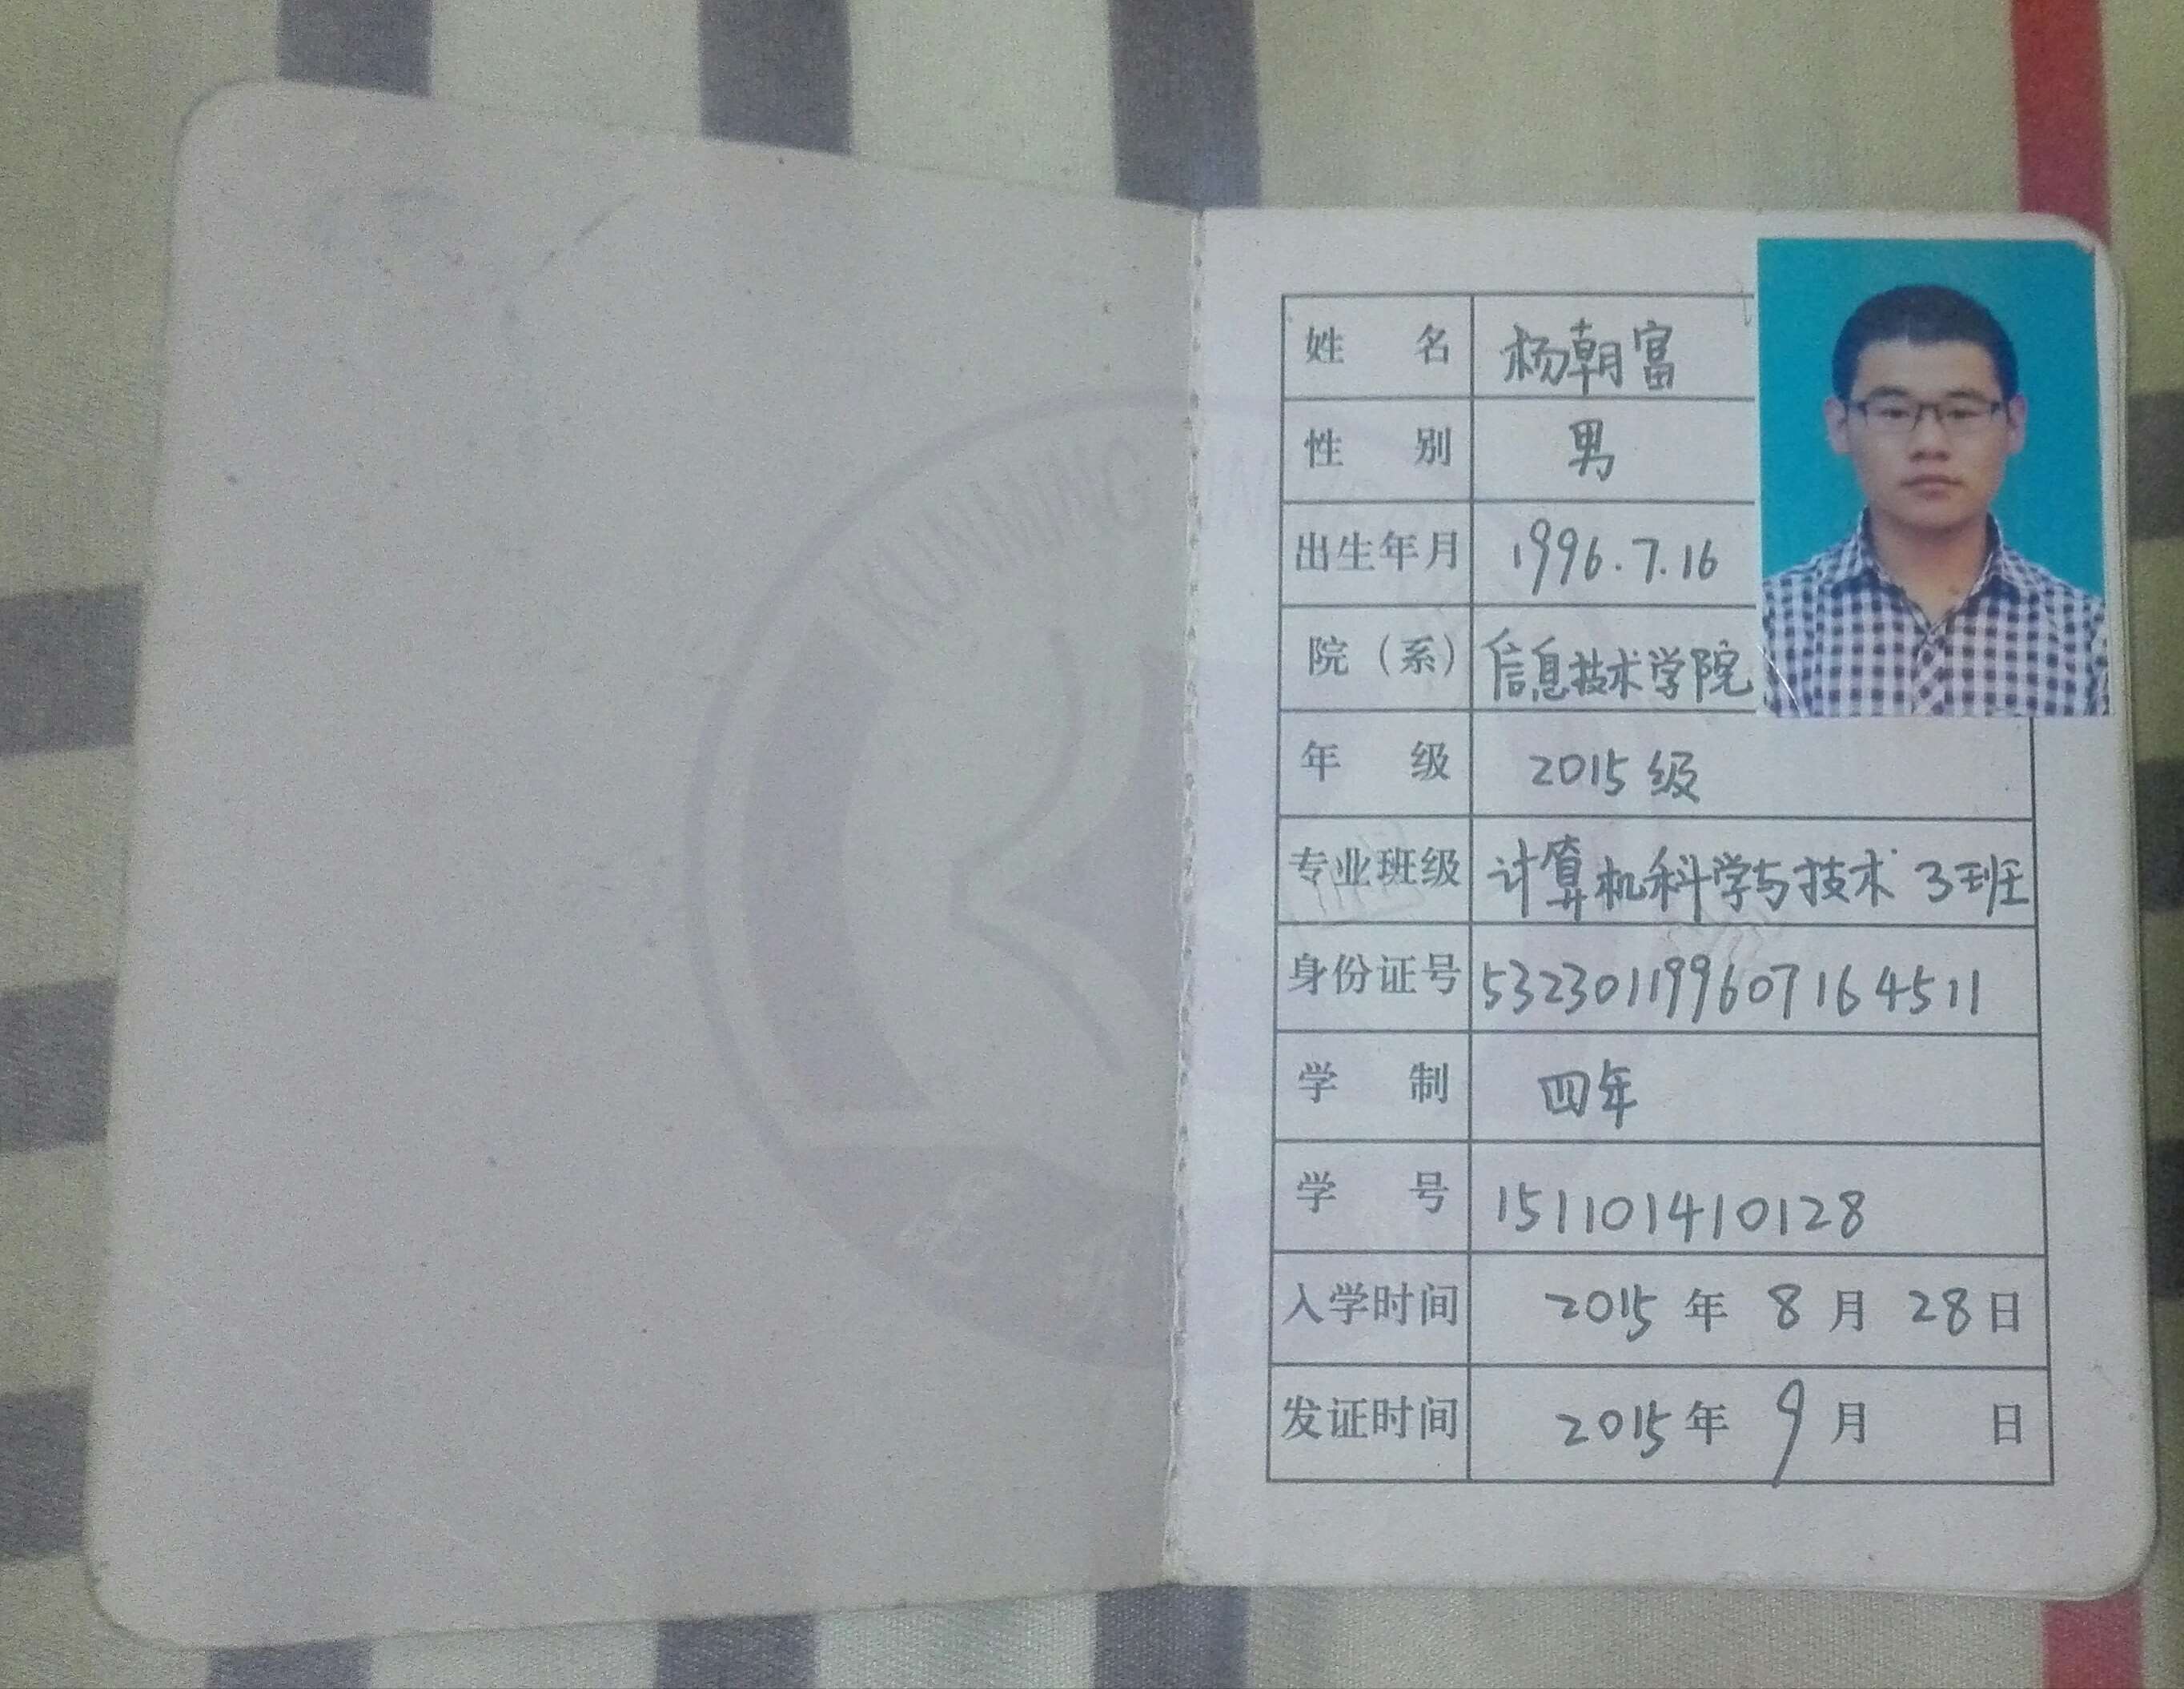 KUNMING UN
姓名 杨朝富
性别 男
出生年月 1996.7.16
院（系） 信息技术学院
年级 2015级
专业班级 计算机科学与技术 3班
身份证号 532301199607164511
学制 四年
学号 151101410128
入学时间 2015 年 8 月 28 日
发证时间 2015 年 9 月 日